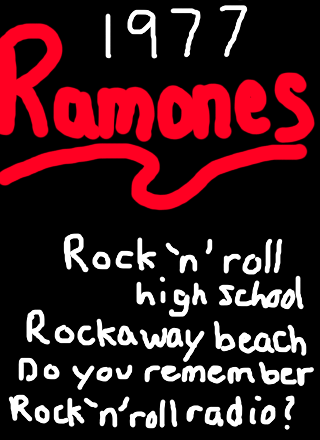 1977
Ramones
Rock `n' roll
high school
Rockaway beach
Do you remember
Rock`n'roll radio?